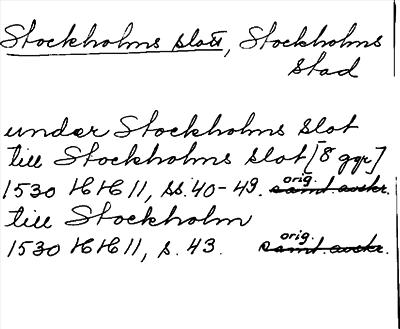 Stockholms slott, Stockholms
stad
under Stockholms slot
till Stockholms slot [8 ggr]
1530 HH 11, ss. 40-49. orig. samt. avskr.
till Stockholm
1530 HH 11, s. 43. orig. samt. avskr.